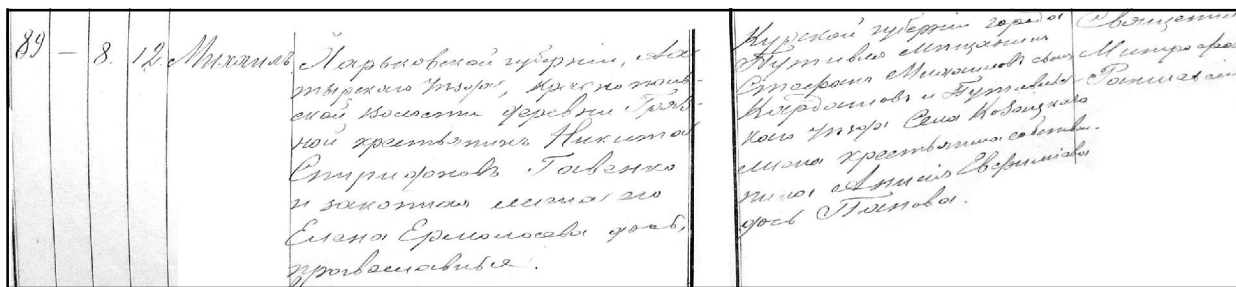 89 – 8. 12. Михаилъ
Харьковской губерніи, Ах-
тырскаго уѣзда, Краснополь-
ской волости деревни Гряз-
ной крестьянинъ Никита
Спиридоновъ Говенко
и законная жена его
Елена Ермолаева дочь,
православные.
Курской губерніи города
Путивля мѣщанинъ
Стефанъ Михаиловъ сынъ
Кардашовъ и Путивль-
скаго уѣзда Села Козацкаго
жена крестьянина собствен-
ника Анисія Евфиміева
дочь Панова.
Священникъ
Митрофанъ